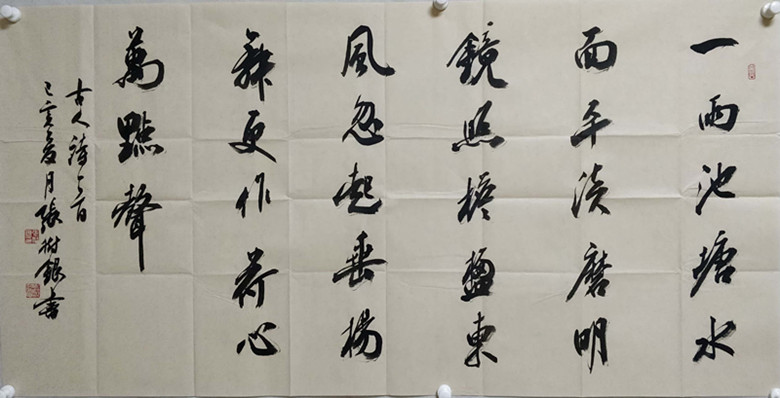 一雨池塘水
面平淡磨明
鏡照檐楹東
風忽起垂楊
舞更作荷心
萬點聲
古人詩一首
己亥夏月張樹銀書